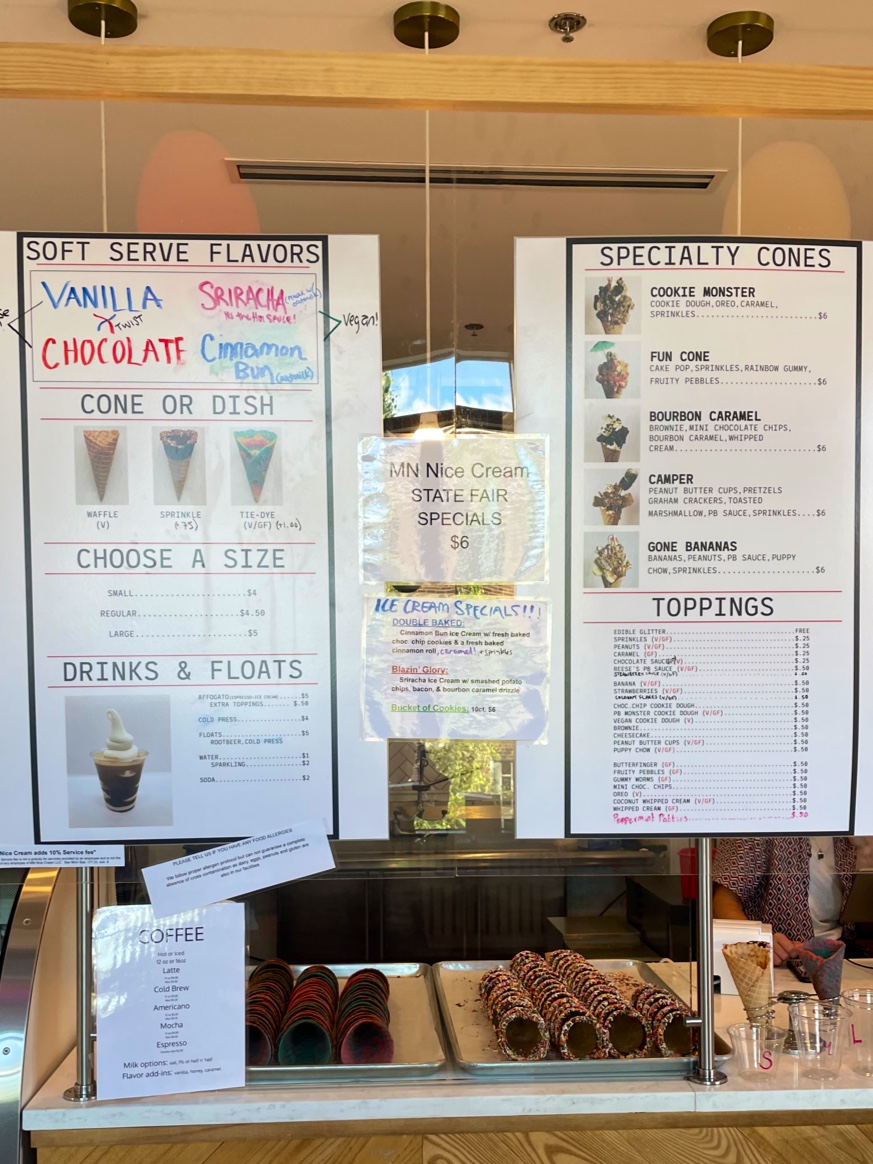 SOFT SERVE FLAVORS
VANILLA
TWIST
CHOCOLATE
SRIRACHA
Yes the Hot Sauce!
Cinnamon
Bun (oatmilk)
Vegan!
CONE OR DISH
WAFFLE
(V)
SPRINKLE
(+.75)
TIE-DYE
(V/GF) (+1.00)
CHOOSE A SIZE
SMALL...$4
REGULAR...$4.50
LARGE...$5
DRINKS & FLOATS
AFFOGATO(ESPRESSO+ICE CREAM)...$5
EXTRA TOPPINGS...$.50
COLD PRESS...$4
FLOATS...$5
ROOTBEER,COLD PRESS
WATER...$1
SPARKLING...$2
SODA...$2
Nice Cream adds 10% Service fee*
PLEASE TELL US IF YOU HAVE ANY FOOD ALLERGIES
*We follow proper allergen protocol but can not guarantee a complete
absence of cross contamination as dairy, eggs, peanuts and gluten are
also in our facilities.
COFFEE
Hot or Iced
12 oz or 16oz
Latte
Cold Brew
Americano
Mocha
Espresso
Milk options: oat, 2% or half n' half
Flavor add-ins: vanilla, honey, caramel
MN Nice Cream
STATE FAIR
SPECIALS
$6
ICE CREAM SPECIALS!!!
DOUBLE BAKED:
Cinnamon Bun Ice Cream w/ fresh baked
choc. chip cookies & a fresh baked
cinnamon roll, caramel! + sprinkles
Blazin' Glory:
Sriracha Ice Cream w/ smashed potato
chips, bacon, & bourbon caramel drizzle
Bucket of Cookies: 10ct, $6
SPECIALTY CONES
COOKIE MONSTER
COOKIE DOUGH,OREO,CARAMEL,
SPRINKLES...$6
FUN CONE
CAKE POP,SPRINKLES,RAINBOW GUMMY,
FRUITY PEBBLES...$6
BOURBON CARAMEL
BROWNIE,MINI CHOCOLATE CHIPS,
BOURBON CARAMEL,WHIPPED
CREAM...$6
CAMPER
PEANUT BUTTER CUPS,PRETZELS
GRAHAM CRACKERS,TOASTED
MARSHMALLOW,PB SAUCE,SPRINKLES....$6
GONE BANANAS
BANANAS,PEANUTS,PB SAUCE,PUPPY
CHOW,SPRINKLES...$6
TOPPINGS
EDIBLE GLITTER...FREE
SPRINKLES (V/GF)...$.25
PEANUTS (V/GF)...$.25
CARAMEL (GF)...$.25
CHOCOLATE SAUCE...$.25
REESE'S PB SAUCE (V/GF)...$.50
BANANA (V/GF)...$.50
STRAWBERRIES (V/GF)...$.50
CHOC.CHIP COOKIE DOUGH...$.50
PB MONSTER COOKIE DOUGH (V/GF)...$.50
VEGAN COOKIE DOUGH (V)...$.50
BROWNIE...$.50
CHEESECAKE...$.50
PEANUT BUTTER CUPS (V/GF)...$.50
PUPPY CHOW (V/GF)...$.50
BUTTERFINGER (GF)...$.50
FRUITY PEBBLES (GF)...$.50
GUMMY WORMS (GF)...$.50
MINI CHOC. CHIPS...$.50
OREO (V)...$.50
COCONUT WHIPPED CREAM (V/GF)...$.50
WHIPPED CREAM (GF)...$.50
Peppermint Patties...$.50
S
M
L